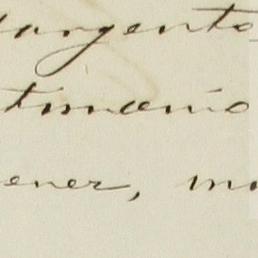 argento
timonio
ener, mo